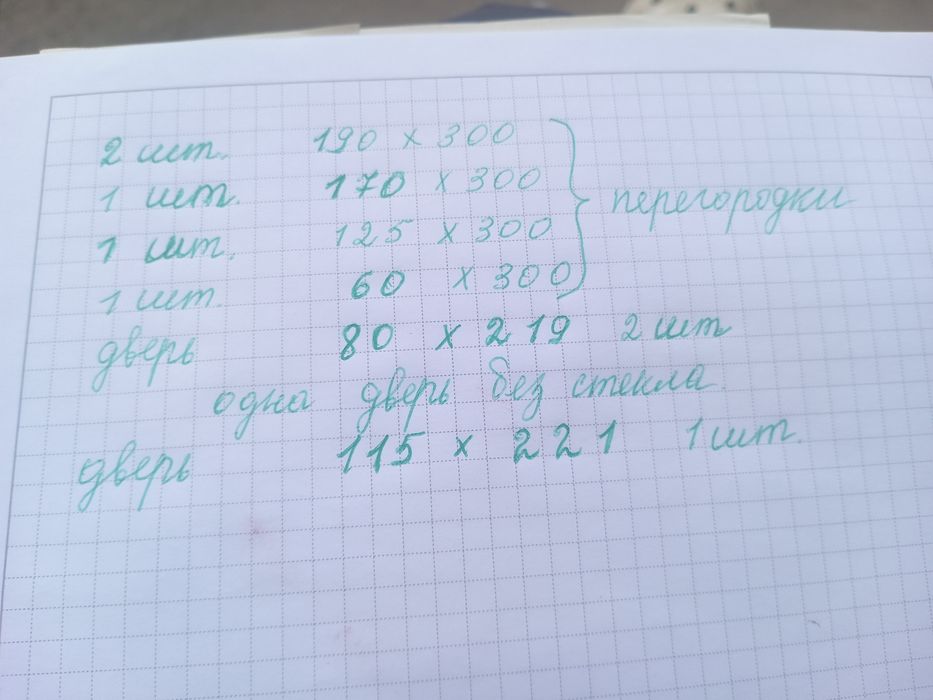 2 шт. 190 x 300
1 шт. 170 x 300
1 шт. 125 x 300
1 шт. 60 x 300
перегородки
дверь 80 x 219 2 шт
одна дверь без стекла
дверь 115 x 221 1 шт.